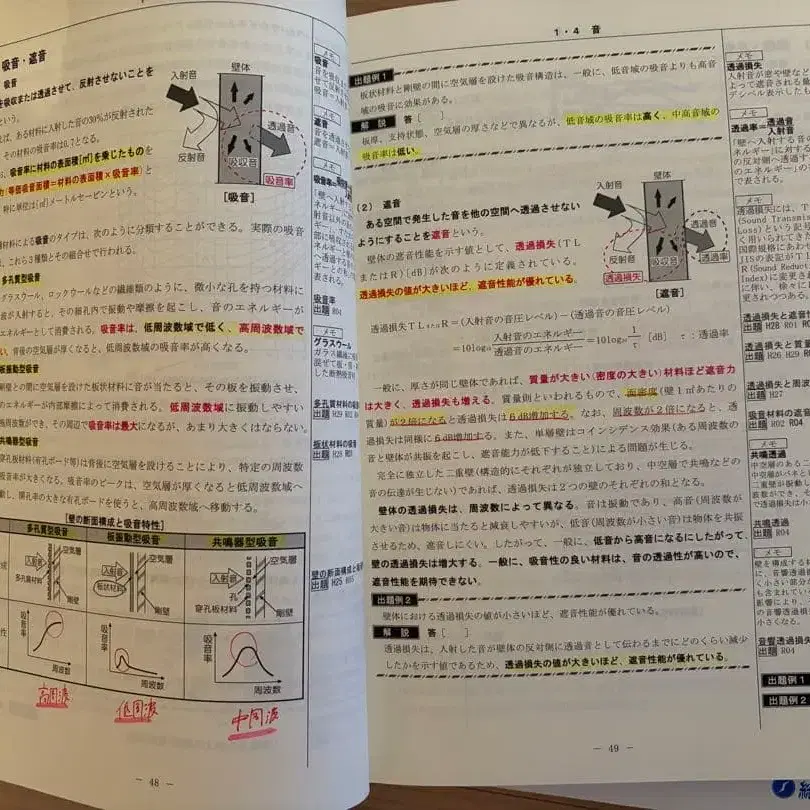 吸音・遮音
吸音
を吸収または透過させて、反射させないことを
という。
ば、ある材料に入射した音の30%が反射された
その材料の吸音率は0.7となる。
、吸音率に材料の表面積[㎡]を乗じたものを
(等価吸音面積＝材料の表面積×吸音率)と
特に単位は[㎡]メートルセービンという。
材料による吸音のタイプは、次のように分類することができる。実際の吸音
は、これら3種類とその組合せで行われる。
多孔質型吸音
グラスウール、ロックウールなどの繊維類のように、微小な孔を持つ材料に
波が入射すると、その細孔内で振動や摩擦を起こし、音のエネルギーが
エネルギーとして消費される。吸音率は、低周波数域で低く、高周波数域で
い。背後の空気層が厚くなると、低周波数域の吸音率が高くなる。
板振動型吸音
剛壁との間に空気層を設けた板状材料に音が当たると、その板を振動させ、
のエネルギーが内部摩擦によって消費される。低周波数域に振動しやすい
振周波数があり、その周辺で吸音率は最大になるが、あまり大きくはならない。
共鳴器型吸音
穿孔板材料(有孔ボード等)は背後に空気層を設けることにより、特定の周波数
吸音率が大きくなる。吸音率のピークは、空気層が厚くなると低周波数域へ
動し、開孔率の大きな有孔ボードを使うと、高周波数域へ移動する。
入射音
壁体
反射音
吸収音
透過音
吸音率
[吸音]
[壁の断面構成と吸音特性]
多孔質型吸音 板振動型吸音 共鳴器型吸音
入射音 空気層 多孔質材料 剛壁
入射音 空気層 板状材料 剛壁
入射音 空気層 孔 穿孔板材料 剛壁
吸音率 周波数
吸音率 周波数
吸音率 周波数
高周波 低周波 中周波
メモ
吸音
メモ
遮音
メモ
吸音率
吸音率
出題 R04
メモ
グラスウール
ガラス繊維に
混ぜて板・
した断熱吸音材
多孔質材料の吸音
出題 H29
板状材料の吸音
出題 H28
壁の断面構成と
出題 H25
－ 48 －
1・4 音
出題例1
板状材料と剛壁の間に空気層を設けた吸音構造は、一般に、低音域の吸音よりも高音
域の吸音に効果がある。
解説 答［　］
板厚、支持状態、空気層の厚さなどで異なるが、低音域の吸音率は高く、中高音域の
吸音率は低い。
(2) 遮音
ある空間で発生した音を他の空間へ透過させない
ようにすることを遮音という。
壁体の遮音性能を示す値として、透過損失(TL
またはR)[dB]が次のように定義されている。
透過損失の値が大きいほど、遮音性能が優れている。
入射音
壁体
反射音
吸収音
透過音
透過損失
透過率
[遮音]
透過損失TLまたはR＝(入射音の音圧レベル)－(透過音の音圧レベル)
＝10log₁₀ 入射音のエネルギー/透過音のエネルギー ＝10log₁₀ 1/τ [dB] τ：透過率
一般に、厚さが同じ壁体であれば、質量が大きい(密度の大きい)材料ほど遮音力
は大きく、透過損失も増える。質量則といわれるもので、面密度(壁1㎡あたりの
質量)が2倍になると透過損失は6dB増加する。なお、周波数が2倍になると、透
過損失は同様に6dB増加する。また、単層壁はコインシデンス効果(ある周波数の
音と壁体が共振を起こし、遮音能力が低下すること)による問題が生じる。
完全に独立した二重壁(構造的にそれぞれが独立しており、中空層で共鳴などの
音の伝達が生じない)であれば、透過損失は2つの壁のそれぞれの和となる。
壁体の透過損失は、周波数によって異なる。音は振動であり、高音(周波数が
大きい音)は物体に当たると減衰しやすいが、低音(周波数が小さい音)は物体を共振
させるため、遮音しにくい。したがって、一般に、低音から高音になるにしたがって、
壁の透過損失は増大する。一般に、吸音性の良い材料は、音の透過性が高いので、
遮音性能を期待できない。
出題例2
壁体における透過損失の値が小さいほど、遮音性能が優れている。
解説 答［　］
透過損失は、入射した音が壁体の反対側に透過音として伝わるまでにどのくらい減少
したかを示す値であるため、透過損失の値が大きいほど、遮音性能が優れている。
メモ
透過損失
入射音が窓や壁など
よって遮音される量
デシベル表示したも
メモ
透過率＝
「壁へ入射する音の
ネルギー」に対する
の反対側へ透過す
のエネルギー」の
で表される。
メモ
透過損失には、T
(Sound Transmi
Loss)という記号
く用いられてきた
国際規格にあわせ
JISの表記がTL
R(Sound Reduc
Index)に変更さ
に伴い、徐々に
更されつつある。
透過損失と遮音性
出題 H28 R01
透過損失と質量
出題 H26 R29
透過損失と周波
出題 H27
吸音材料の遮音
出題 R02 R04
メモ
共鳴透過
共鳴透過
出題 R04
メモ
音響透過損失
出題 R04
出題例1
出題例2
－ 49 －